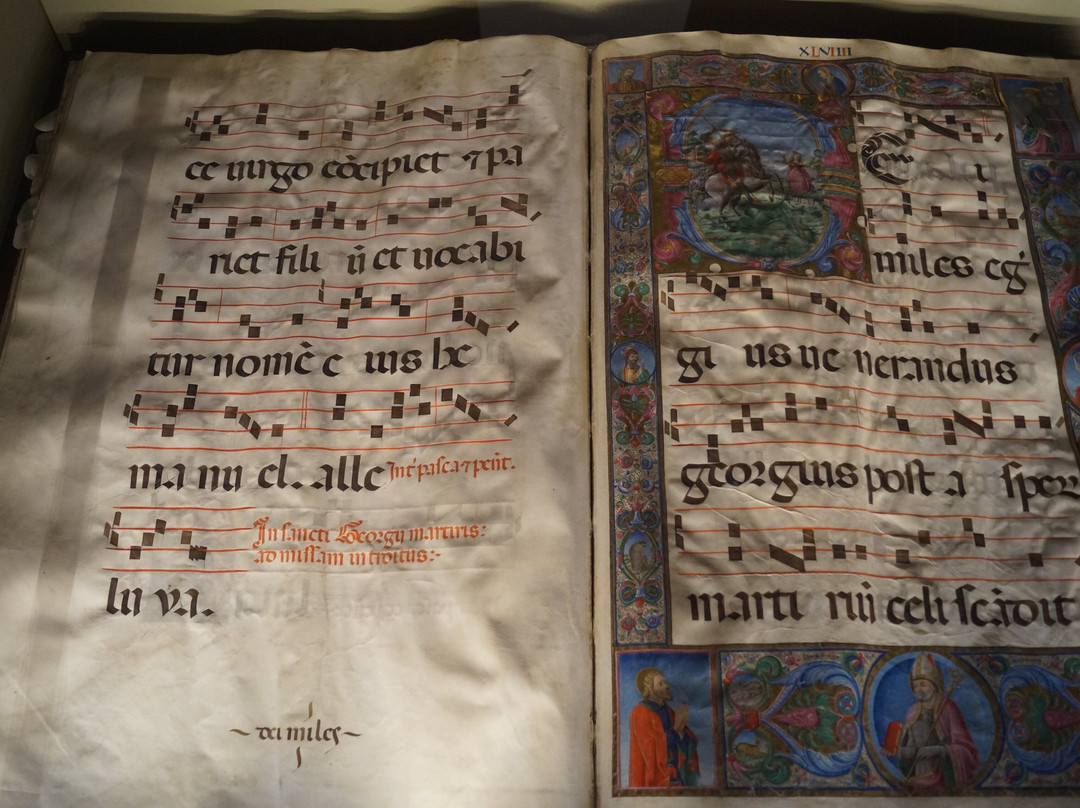 ce uirgo cõcipiet ⁊ pa
riet fili ũ et uocabi
tur nomẽ e ius he
ma nu el. alle
In sancti Georgij martiris:
ad missam introitus:
lu ya.
dei miles
XLVIIII
E i
miles eg
gi us ue nerandus
georgius post a sper
marti rii celi scãdit